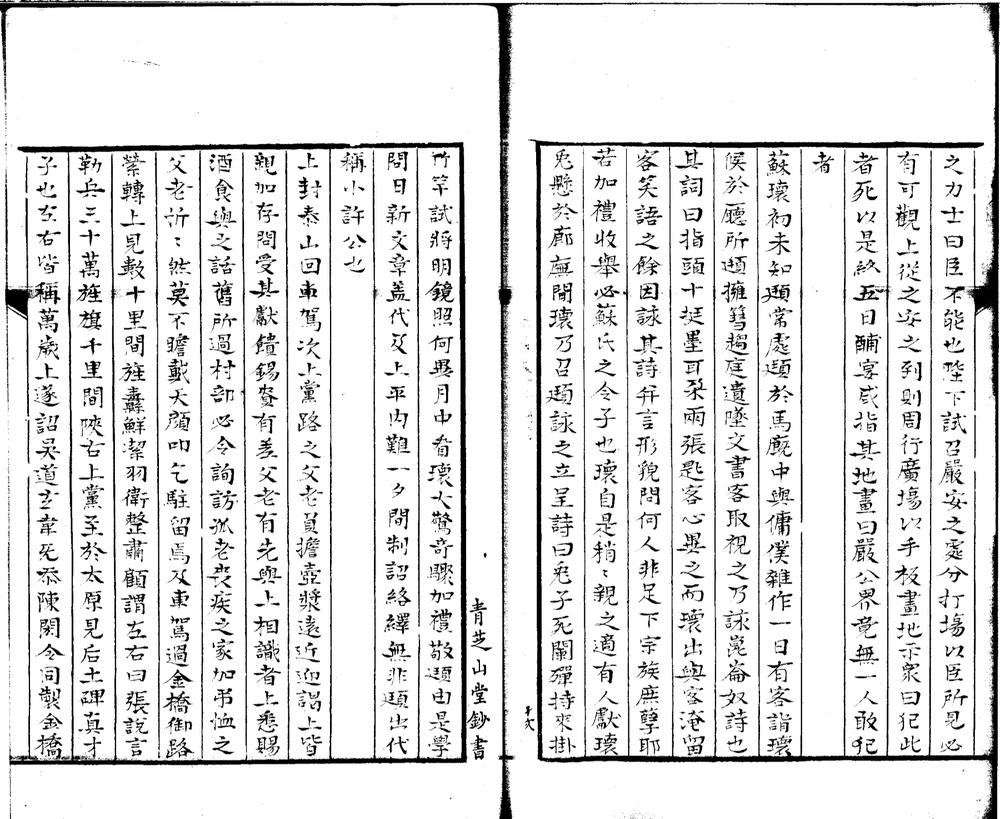 之力士曰臣不能也陛下試召嚴安之處分打場以臣所見必
有可觀上從之安之到則周行廣場以手板畫地示衆曰犯此
者死以是終五日酺宴咸指其地畫曰嚴公界竟無一人敢犯
者
蘇瓌初未知頲常處頲於馬廐中與傭僕雜作一日有客詣瓌
候於廳所頲擁篲趨庭遺墜文書客取視之乃詠崑崙奴詩也
其詞曰指頭十挺墨耳朶兩張匙客心異之而瓌出與客淹留
客笑語之餘因詠其詩并言形貌問何人非足下宗族庶孽耶
若加禮收舉必蘇氏之令子也瓌自是稍〻親之適有人獻瓌
兎懸於廊廡間瓌乃召頲詠之立呈詩曰兎子死闌殫持來掛
竹竿試將明鏡照何異月中看瓌大驚奇驟加禮敬頲由是學
問日新文章盖代及上平内難一夕間制詔絡繹無非頲出代
稱小許公也
上封泰山回車駕次上黨路之父老負擔壺漿遠近迎謁上皆
親加存問受其獻饋錫賚有差父老有先與上相識者上悉賜
酒食與之話舊所過村部必令詢訪孤老喪疾之家加弔恤之
父老忻〻然莫不瞻戴天顔叩乞駐留焉及車駕過金橋御路
縈轉上見數十里間旌纛鮮潔羽衛整肅顧謂左右曰張說言
勒兵三十萬旌旗千里間陜右上黨至於太原見后土碑真才
子也左右皆稱萬歲上遂詔吳道玄韋无忝陳閎令同製金橋
青芝山堂鈔書